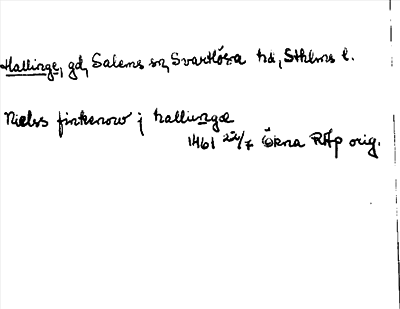 Hallinge, gd, Salems sn, Svartlösa hd, Sthlms l.
Nielss finkenow j hallunge
1461 22/7 Ökna RAp orig.